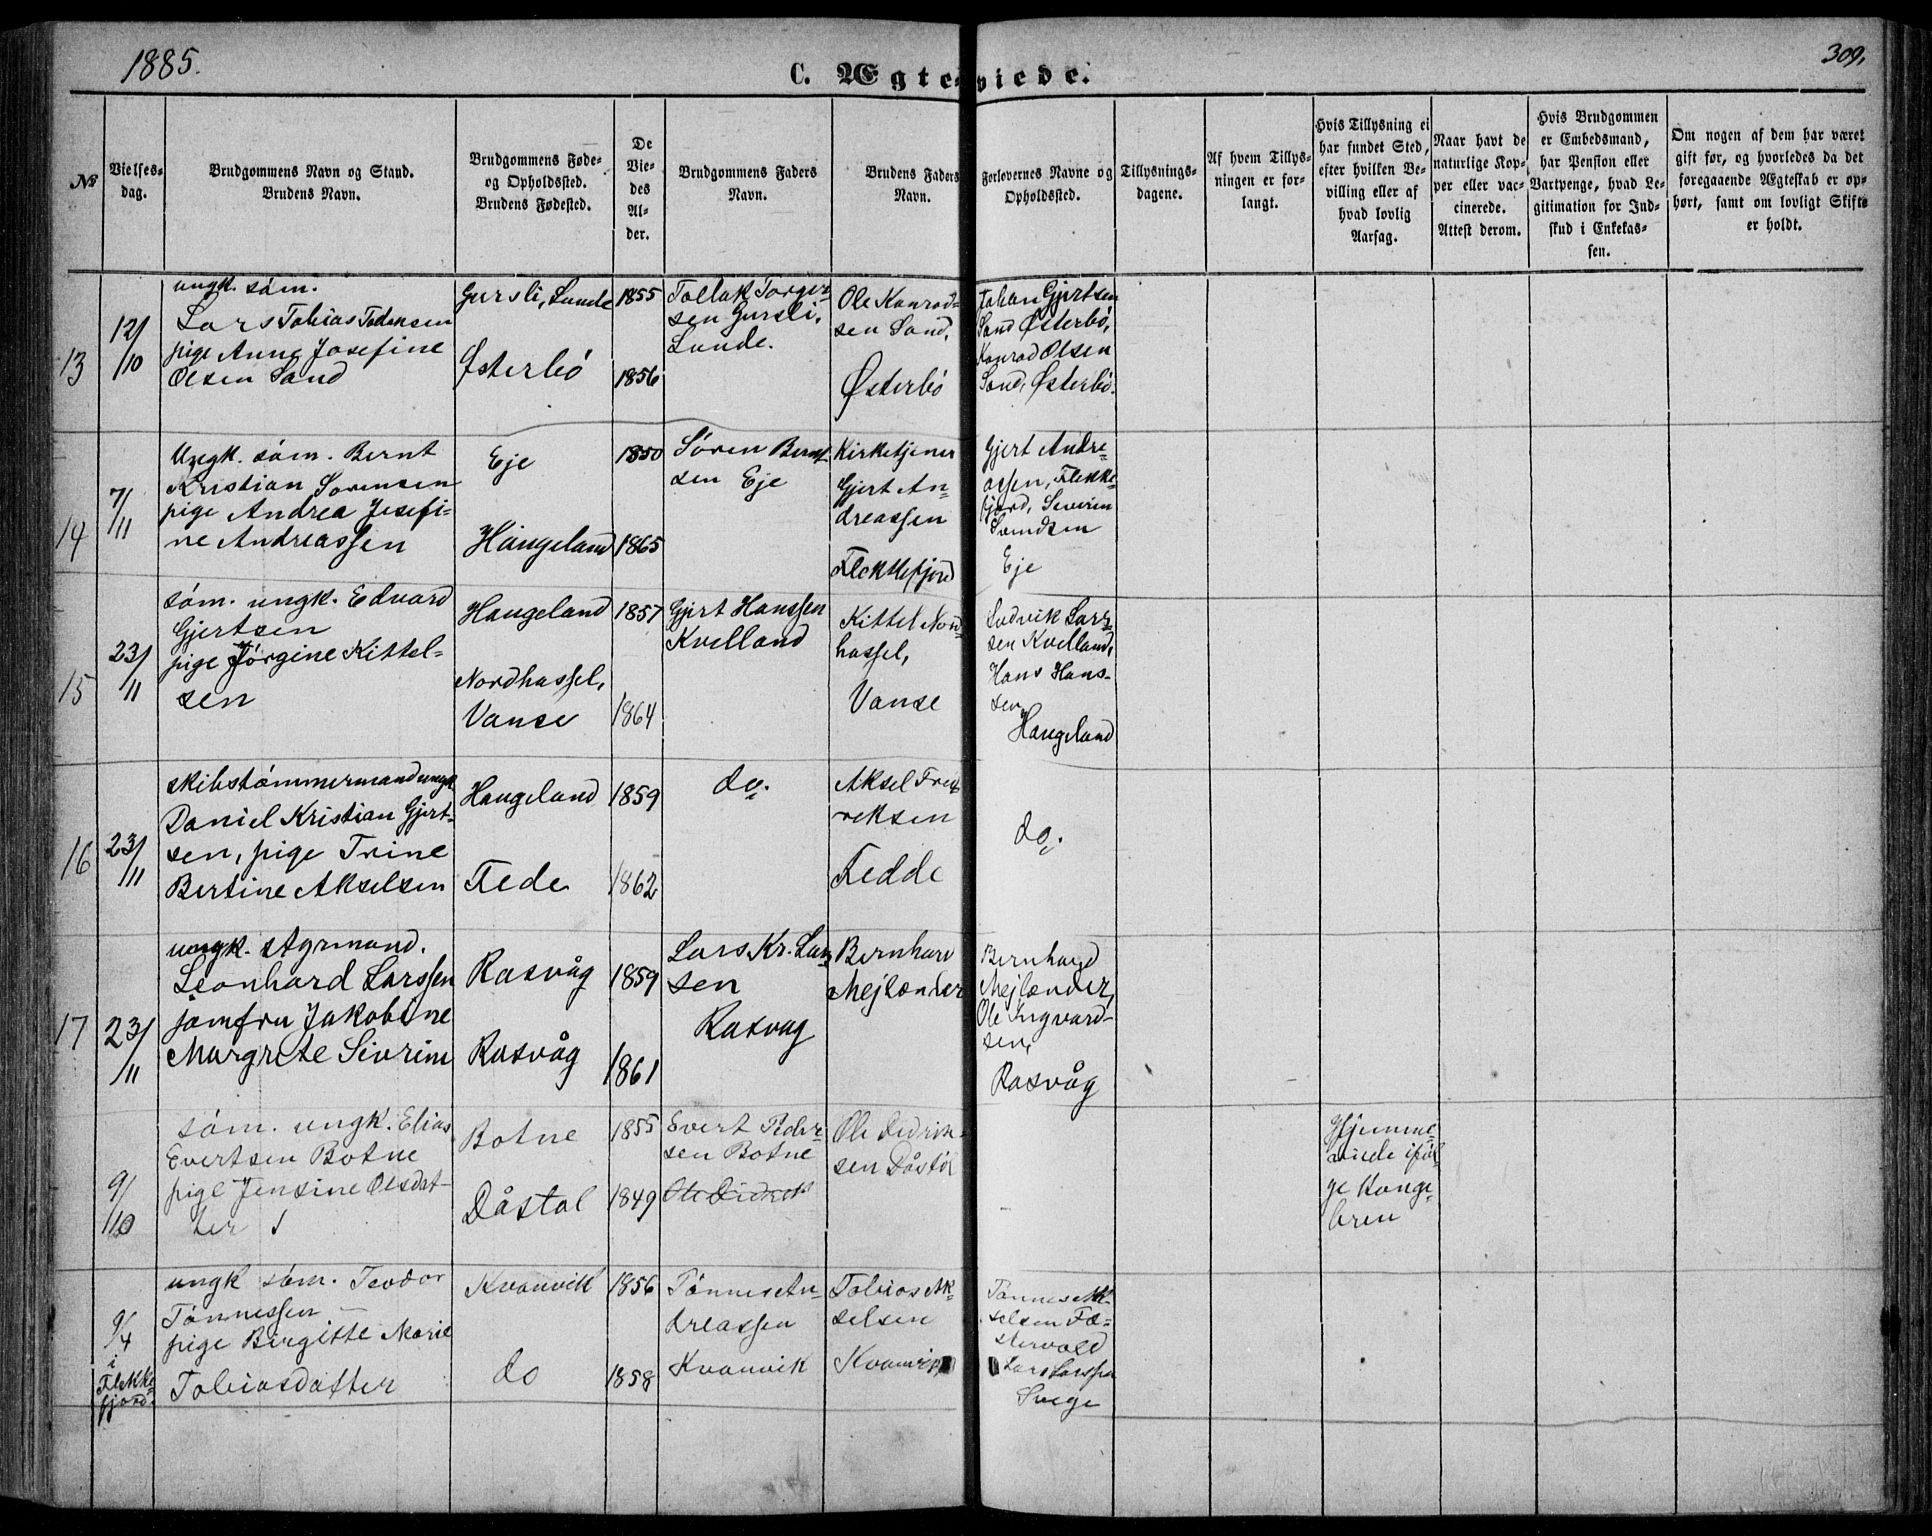 1885.
C. Ægteviede.
309.
No
Vielses-
dag.
Brudgommens Navn og Stand.
Brudens Navn.
Brudgommens Føde-
og Opholdssted.
Brudens Fødested.
De
Vie-
des
Al-
der.
Brudgommens Faders
Navn.
Brudens Faders
Navn.
Forlovernes Navne og
Opholdssted.
Tillysnings-
dagene.
Af hvem Tillys-
ningen er for-
langt.
Hvis Tillysning ei
har fundet Sted,
efter hvilken Be-
villing eller af
hvad lovlig
Aarsag.
Naar havt de
naturlige Kop-
per eller vac-
cinerede.
Attest derom.
Hvis Brudgommen
er Embedsmand,
har Pension eller
Vartpenge, hvad Le-
gitimation for Ind-
skud i Enkekas-
sen.
Om nogen af dem har været
gift før, og hvorledes da det
foregaaende Ægteskab er op-
hørt, samt om lovligt Skifte
er holdt.
13
12/
/10
ungk. søm.
Lars Tobias
pige Anne Josefine
Olsen Sand
Gursli, Lunde
Østerbö
1855
1856
Tollak Torger-
sen Gursli,
Lunde.
Ole Konrad-
sen Sand,
Østerbö
Johan Gjertsen
Sand Østerbö,
Konrad Olsen
Sand, Østerbö.
14
7/
/11
Ungk. søm. Bernt
Kristian Sørensen
pige Andrea Josefi-
ne Andreassen
Eje
Haugeland
1850
1865
Søren Bernt-
sen Eje
Kirketjener
Gjert An-
dreassen
Flekkefjord
Gjert Andre-
assen, Flekke-
fjord, Severin
Svendsen
Eje
15
23/
/11
søm. ungk. Edvard
Gjertsen
pige Jørgine Kittel-
sen
Haugeland
Nordhassel,
Vanse
1857
1864
Gjert Hanssen
Kvelland
Kittel Nord-
hassel,
Vanse
Ludvik Lars-
sen Kvelland,
Hans Hans-
sen,
Haugeland
16
23/
/11
skibstømmermand ungk.
Daniel Kristian Gjert-
sen, pige Trine
Bertine Akselsen
Haugeland
Fede
1859
1862
do.
Aksel Fred-
reksen
Fedde
do.
17
23/
/11
ungk. styrmand.
Leonhard Larssen
jomfru Jakobine
Margrete Sivrine
Rasvåg
Rasvåg
1859
1861
Lars Kr. Lars-
sen
Rasvag
Bernhard
Mejlænder
Bernhard
Mejlænder,
Ole Ingvard-
sen,
Rasvåg
9/
/10
søm. ungk. Elias
Evertsen Botne
pige Jensine Olsdat-
ter
Botne
Dåstøl
1855
1849
Evert Peder-
sen Botne
Ole Didrek
Ole Didrik-
sen Dåstøl
Hjemme-
viede iføl-
ge Konge-
brev
9/
/4
i
Flekke-
fjord.
ungk søm. Teodor
Tønnessen
pige Birgitte Marie
Tobiasdatter
Kvanvik
do
1856
1858
Tønnes An-
dreassen
Kvanvik
Tobias Ak-
selsen
Kvanvik
Tønnes Ak-
selsen Fæ-
stervold
Lars Larssen
Svege